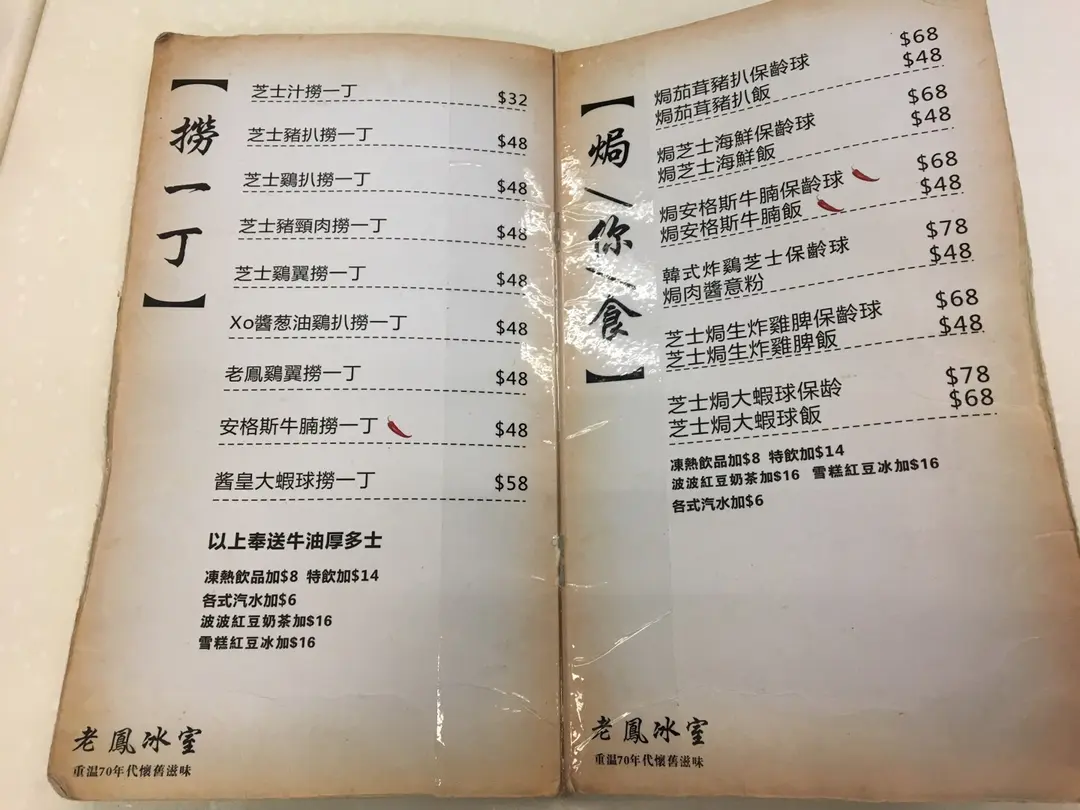 【撈一丁】
芝士汁撈一丁 $32
芝士豬扒撈一丁 $48
芝士鷄扒撈一丁 $48
芝士豬頸肉撈一丁 $48
芝士鷄翼撈一丁 $48
Xo醬葱油鷄扒撈一丁 $48
老鳳鷄翼撈一丁 $48
安格斯牛腩撈一丁 $48
酱皇大蝦球撈一丁 $58
以上奉送牛油厚多士
凍熱飲品加$8 特飲加$14
各式汽水加$6
波波紅豆奶茶加$16
雪糕紅豆冰加$16
老鳳冰室
重温70年代懷舊滋味
【焗\你/食】
焗茄茸豬扒保齡球 $68
焗茄茸豬扒飯 $48
焗芝士海鮮保齡球 $68
焗芝士海鮮飯 $48
焗安格斯牛腩保齡球 $68
焗安格斯牛腩飯 $48
韓式炸鷄芝士保齡球 $78
焗肉醬意粉 $48
芝士焗生炸雞脾保齡球 $68
芝士焗生炸雞脾飯 $48
芝士焗大蝦球保龄 $78
芝士焗大蝦球飯 $68
凍熱飲品加$8 特飲加$14
波波紅豆奶茶加$16 雪糕紅豆冰加$16
各式汽水加$6
老鳳冰室
重温70年代懷舊滋味